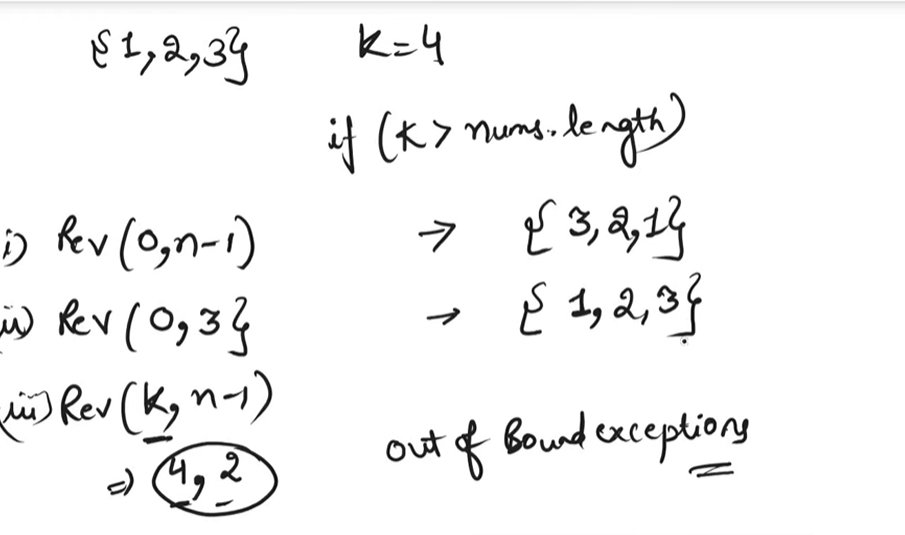 {1,2,3} k=4
if (k> nums.length)
i) Rev(0,n-1) → {3,2,1}
ii) Rev(0,3} → {1,2,3}
iii) Rev(k,n-1)
out of Bound exceptions
⇒ 4,2